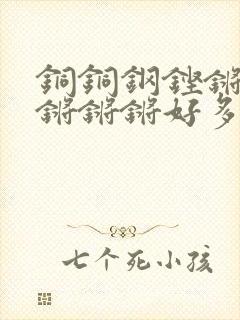 銅銅鋼鏗鏘
鏘鏘鏘好多
七个死小孩